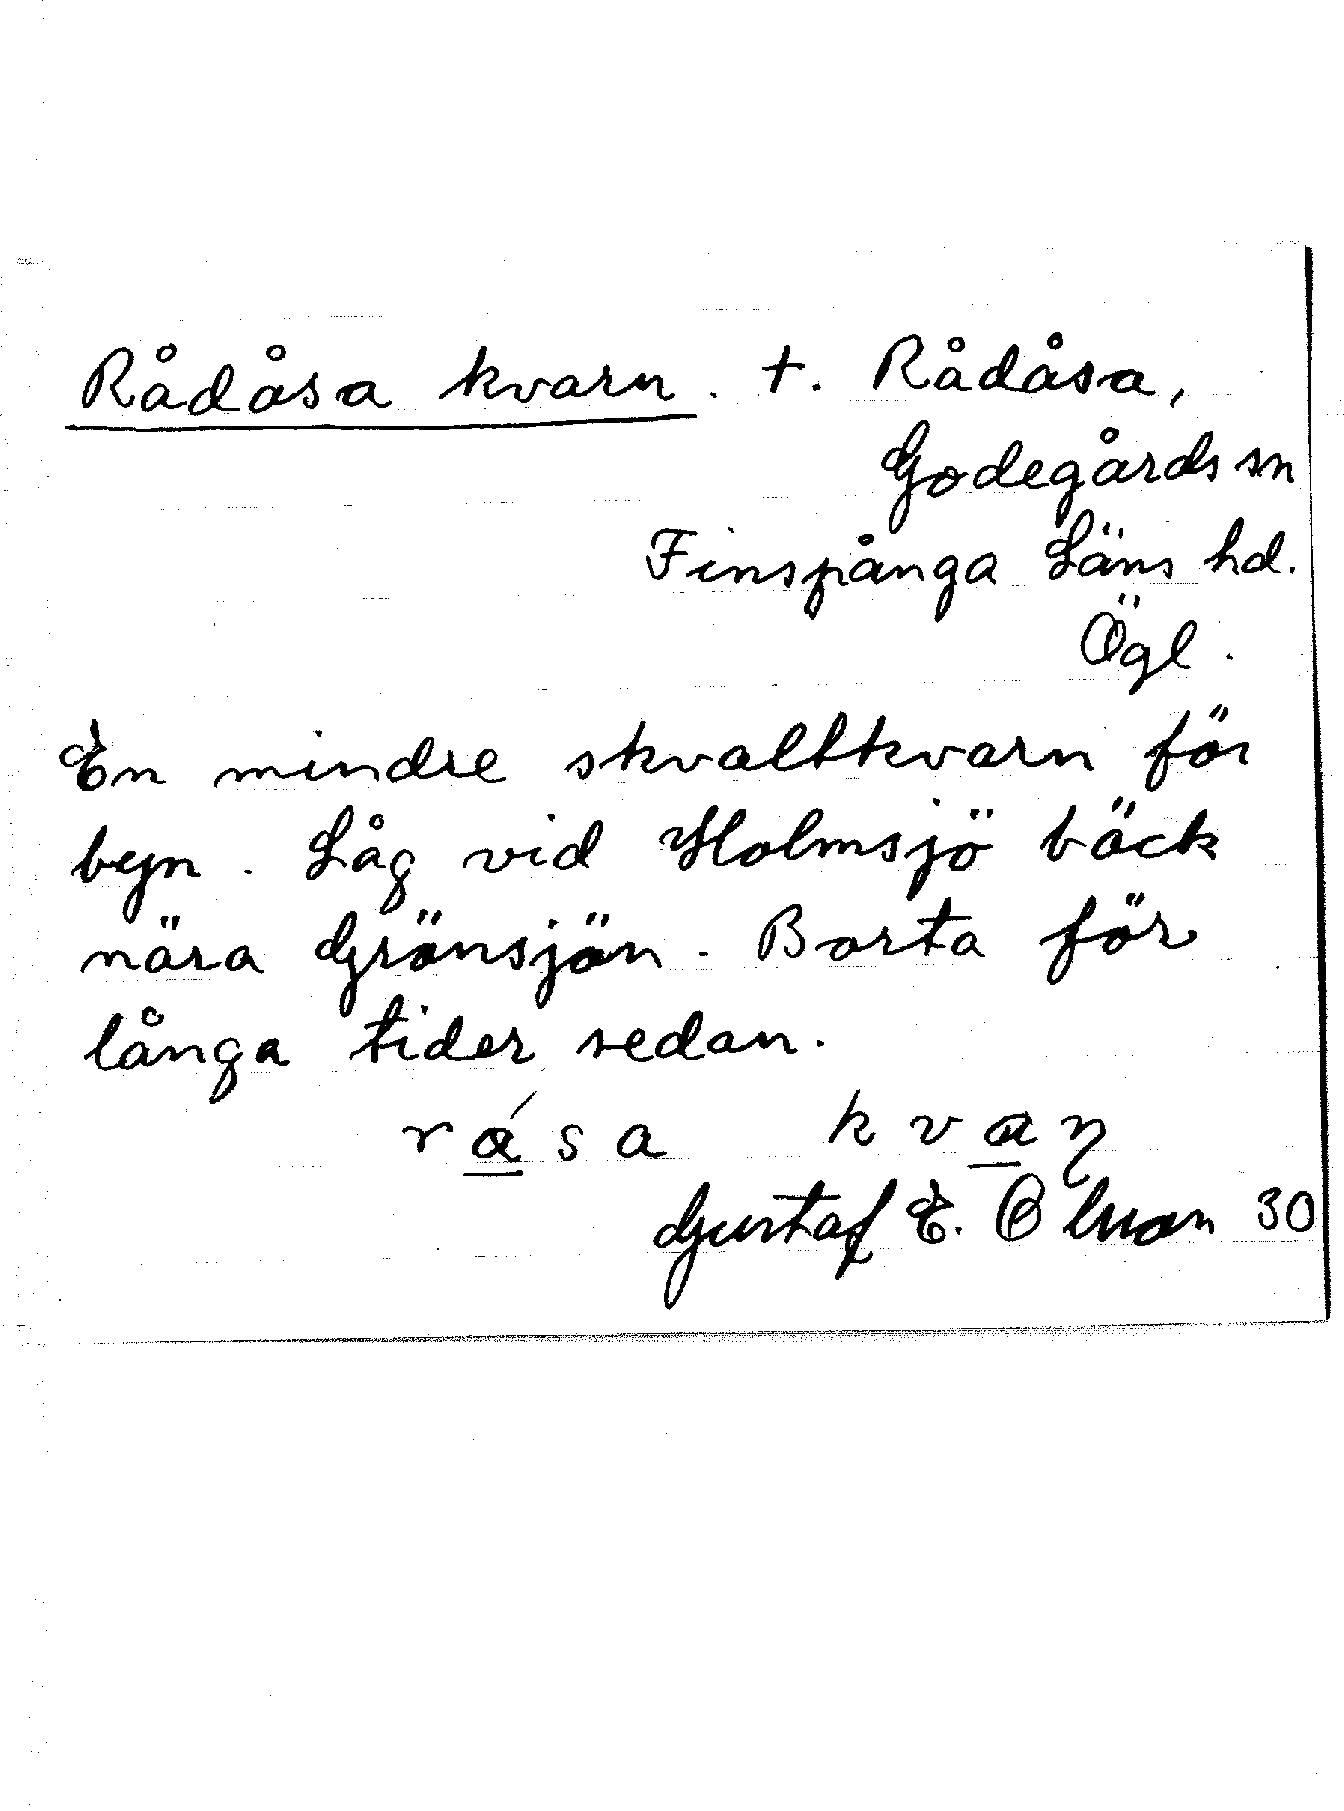 Rådåsa kvarn. †. Rådåsa,
Godegårds sn
Finspånga Läns hd.
Ögl.
En mindre skvaltkvarn för
byn. Låg vid Holmsjö bäck
nära Grönsjön. Borta för
långa tider sedan.
rása kvaɳ
Gustaf E. Olsson 30